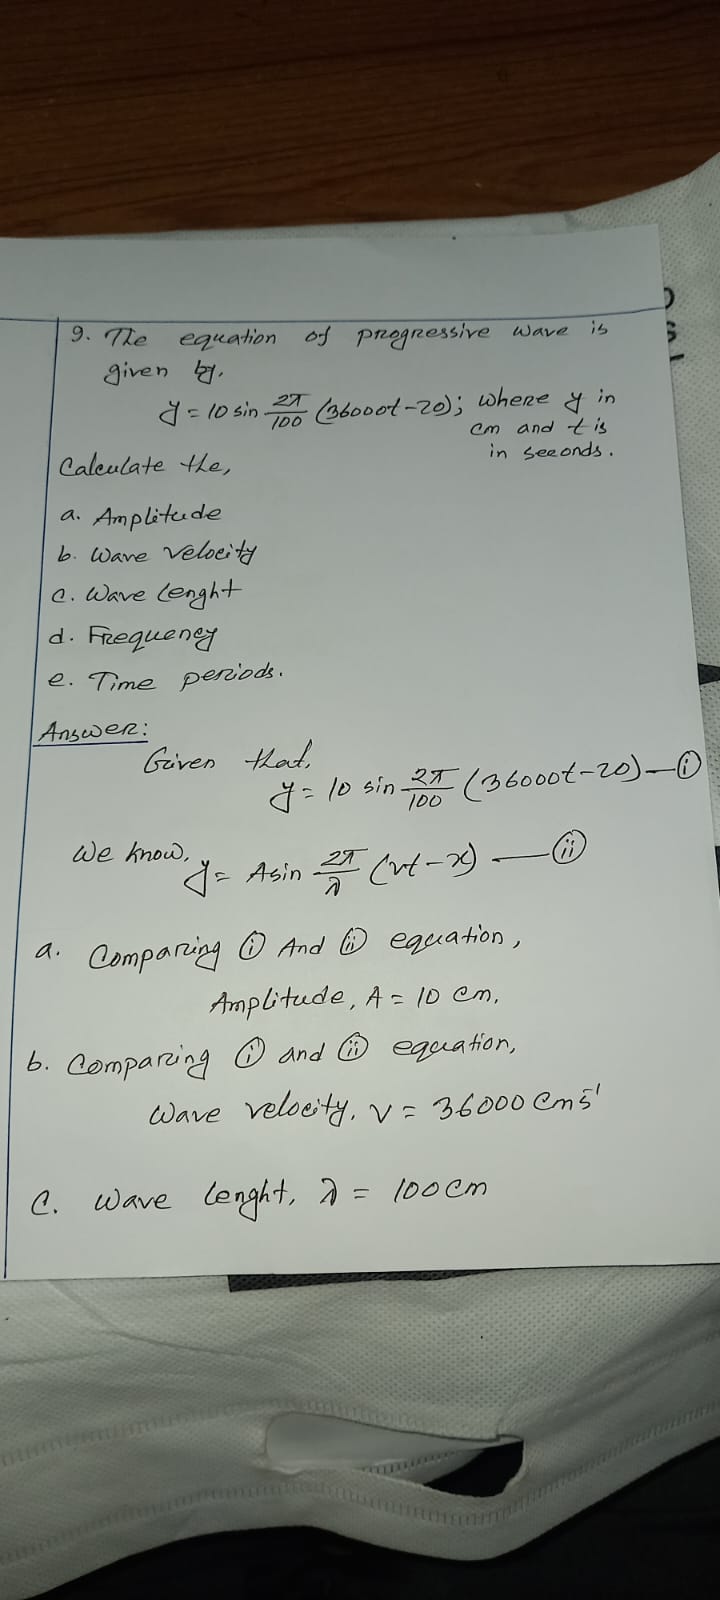 9. The equation of progressive wave is
given by.
y = 10 sin 2π/100 (36000t-20); where y in
cm and t is
in seconds.
Calculate the,
a. Amplitude
b. Wave velocity
c. Wave lenght
d. Frequency
e. Time periods.
Answer:
Given that,
y = 10 sin 2π/100 (36000t-20) — (i)
We know, y = A sin 2π/λ (vt - x) — (ii)
a. Comparing (i) And (ii) equation,
Amplitude, A = 10 cm.
b. Comparing (i) and (ii) equation,
Wave velocity, v = 36000 cms⁻¹
C. Wave lenght, λ = 100 cm